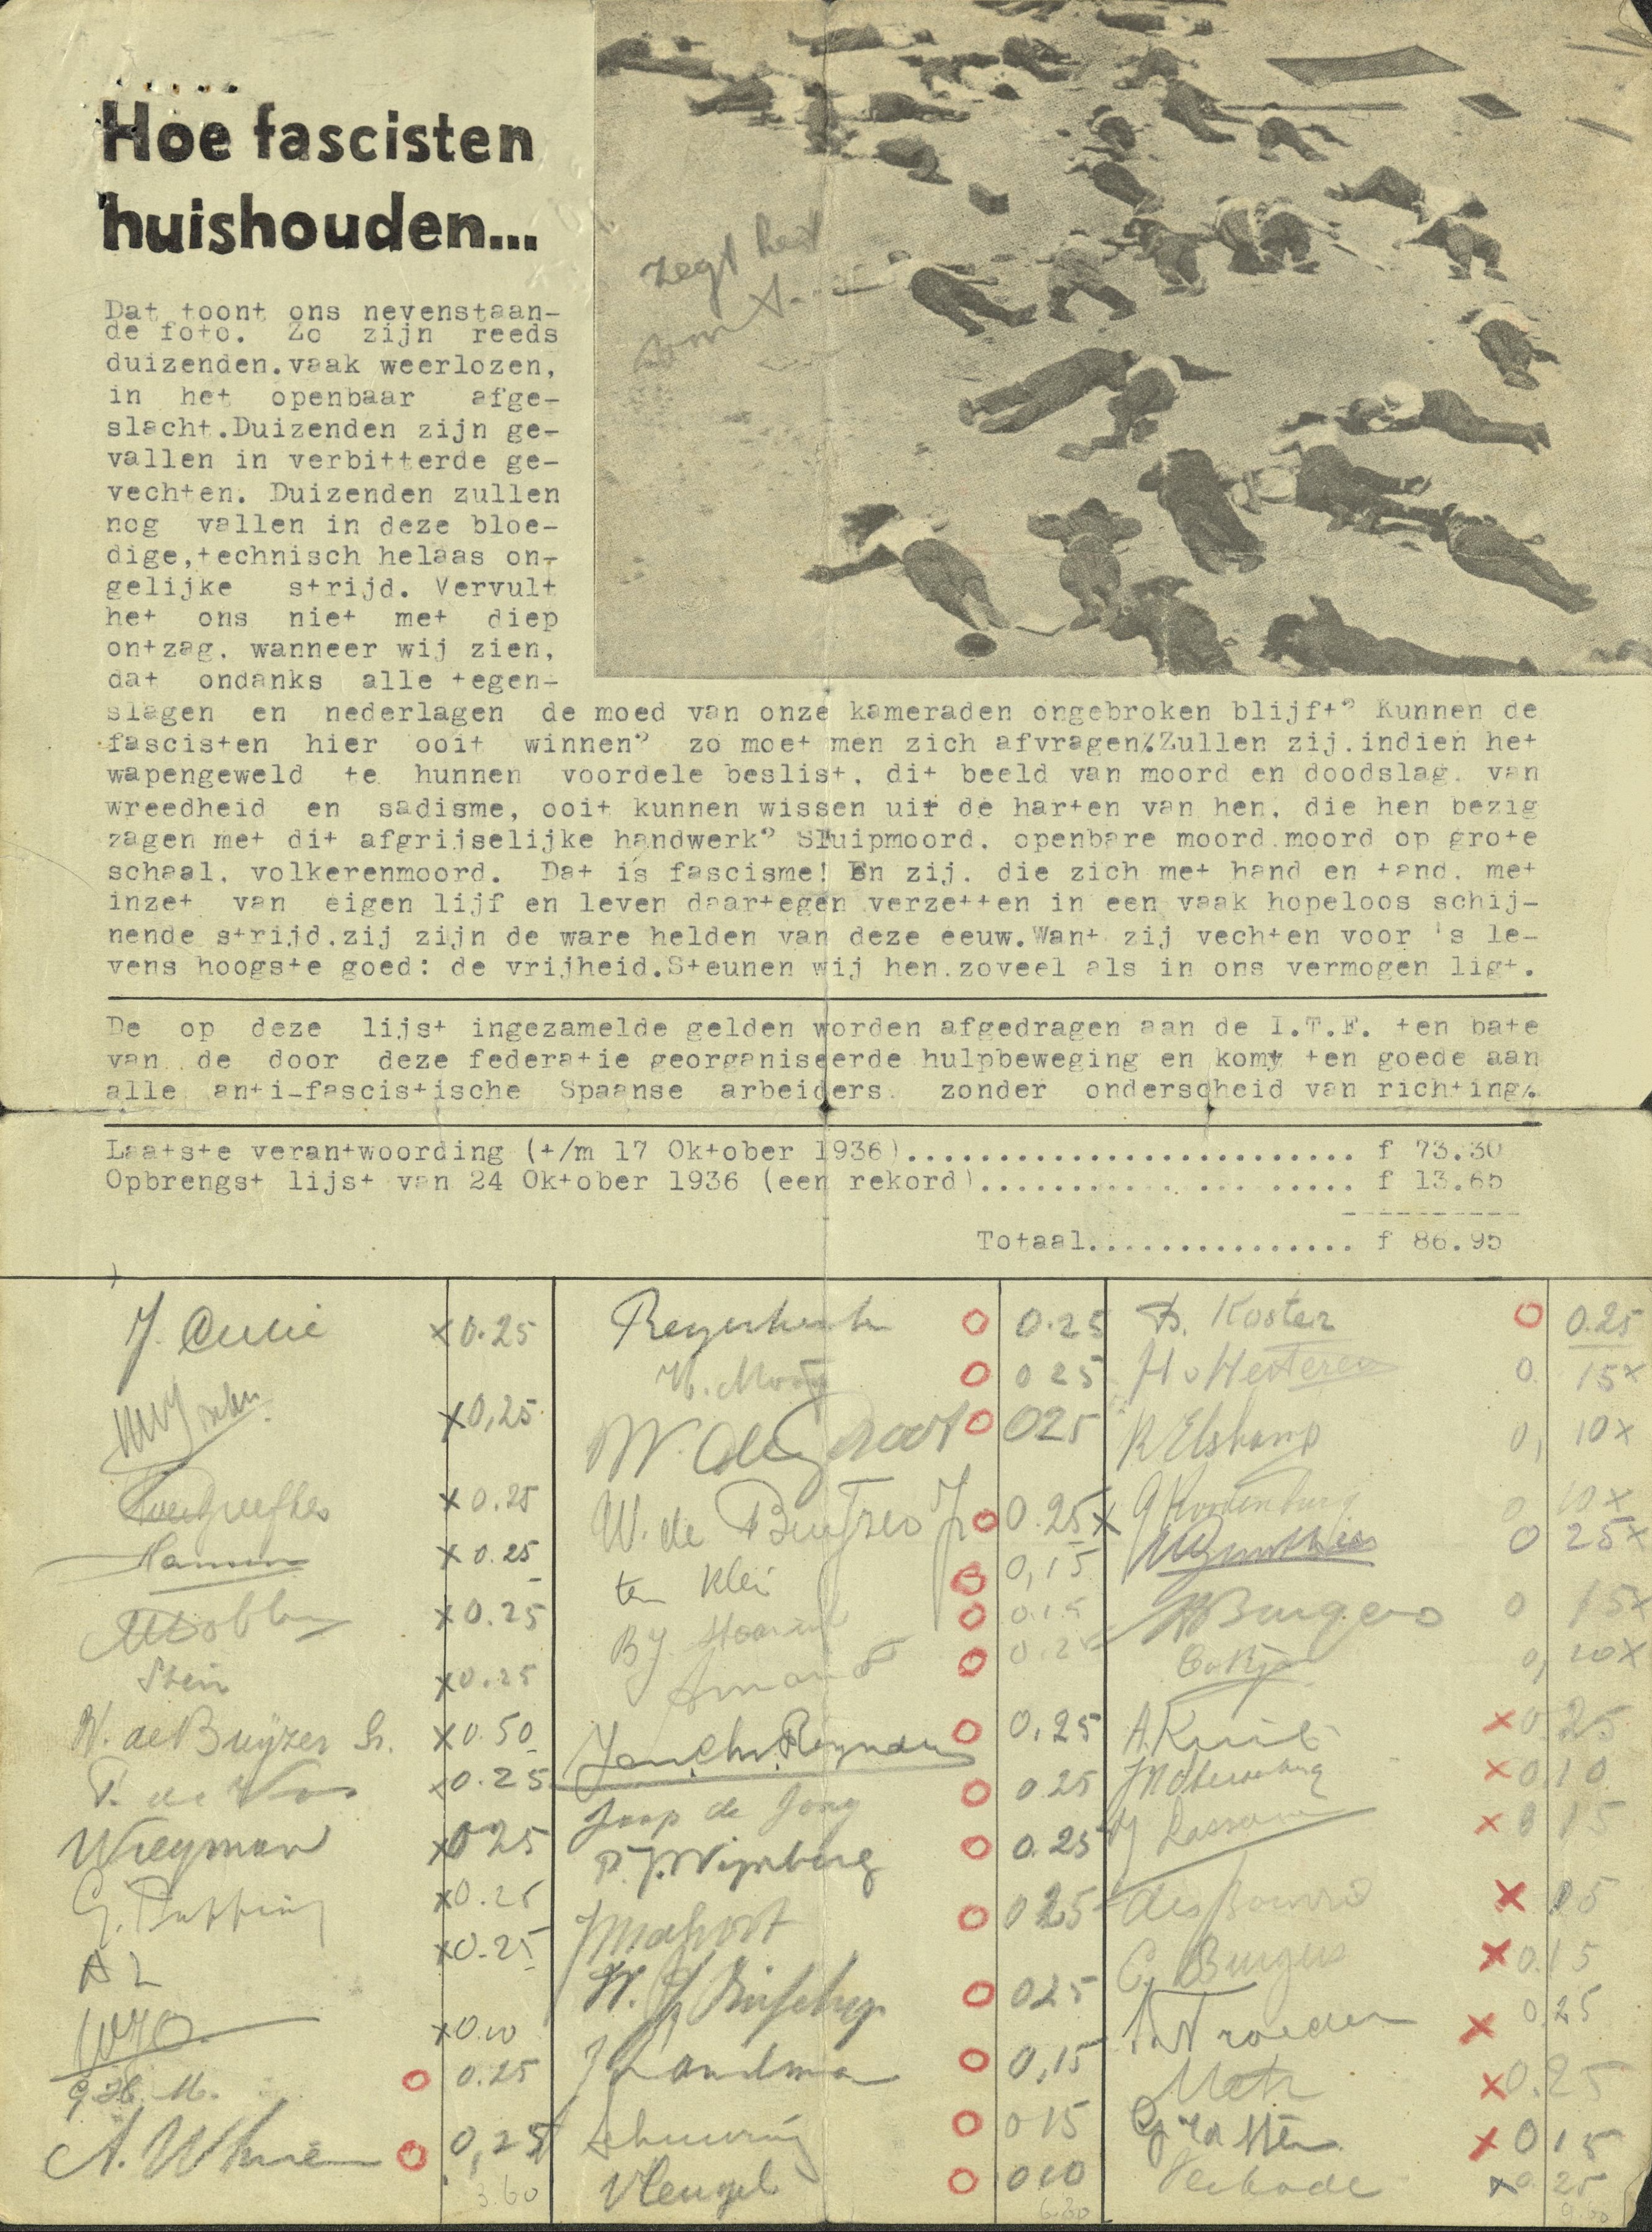 Hoe fascisten
huishouden...
zegt het
Dat toont ons nevenstaan-
de foto. Zo zijn reeds
duizenden.vaak weerlozen,
in het openbaar afge-
slacht.Duizenden zijn ge-
vallen in verbitterde ge-
vechten. Duizenden zullen
nog vallen in deze bloe-
dige,technisch helaas on-
gelijke strijd. Vervult
het ons niet met diep
ontzag, wanneer wij zien,
dat ondanks alle tegen-
slagen en nederlagen de moed van onze kameraden ongebroken blijft? Kunnen de
fascisten hier ooit winnen? zo moet men zich afvragen. Zullen zij.indien het
wapengeweld te hunnen voordele beslist, dit beeld van moord en doodslag, van
wreedheid en sadisme, ooit kunnen wissen uit de harten van hen, die hen bezig
zagen met dit afgrijselijke handwerk? Sluipmoord, openbare moord.moord op grote
schaal, volkerenmoord. Dat is fascisme! En zij, die zich met hand en tand, met
inzet van eigen lijf en leven daartegen verzetten in een vaak hopeloos schij-
nende strijd,zij zijn de ware helden van deze eeuw.Want zij vechten voor 's le-
vens hoogste goed: de vrijheid.Steunen wij hen.zoveel als in ons vermogen ligt.
De op deze lijst ingezamelde gelden worden afgedragen aan de I.T.F. ten bate
van de door deze federatie georganiseerde hulpbeweging en komt ten goede aan
alle anti-fascistische Spaanse arbeiders, zonder onderscheid van richting.
Laatste verantwoording (t/m 17 Oktober 1936)............................ f 73.30
Opbrengst lijst van 24 Oktober 1936 (een rekord)....................... f 13.65
Totaal................ f 86.95
x0.25
x0,25
x0.25
x0.25
x0.25
Stein x0.25
W. de Buyzer Sr. x0.50
P. de Vos x0.25
Wiegman x0.25
x0.25
A L x0.25
x0.10
G.H. M. O 0.25
O 0,25
3.60
O 0.25
O 0 25
W. de Groot O 025
W. de Buyzer Jr O 0.25
ten Klei O 0,15
O 0.15
O 0.25
O 0.25
Jaap de Jong O 0.25
P.J. Wijnberg O 0.25
O 0 25
O 025
O 0,15
O 0 15
Vleugel O 0.10
6.80
D. Koster O 0.25
H v Hesteren 0. 15x
R Elshamp 0, 10x
0 10x
0 25x
Burgers 0 15x
0, 20x
x 0.25
x 0,10
x 0 15
x 15
C. Burgers x 0.15
x 0,25
Metz x 0.25
x 0 15
Verkade x 0.25
9.60